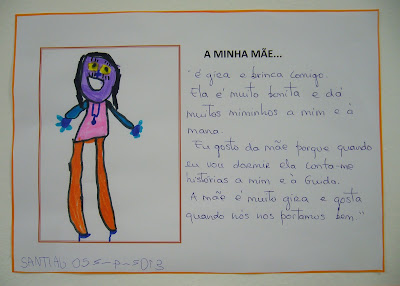 A MINHA MÃE...
"é gira e brinca comigo.
Ela é muito bonita e dá
muitos miminhos a mim e à
mana.
Eu gosto da mãe porque quando
eu vou dormir ela conta-me
histórias a mim e à Guida.
A mãe é muito gira e gosta
quando nós nos portamos bem."
SANTIAG